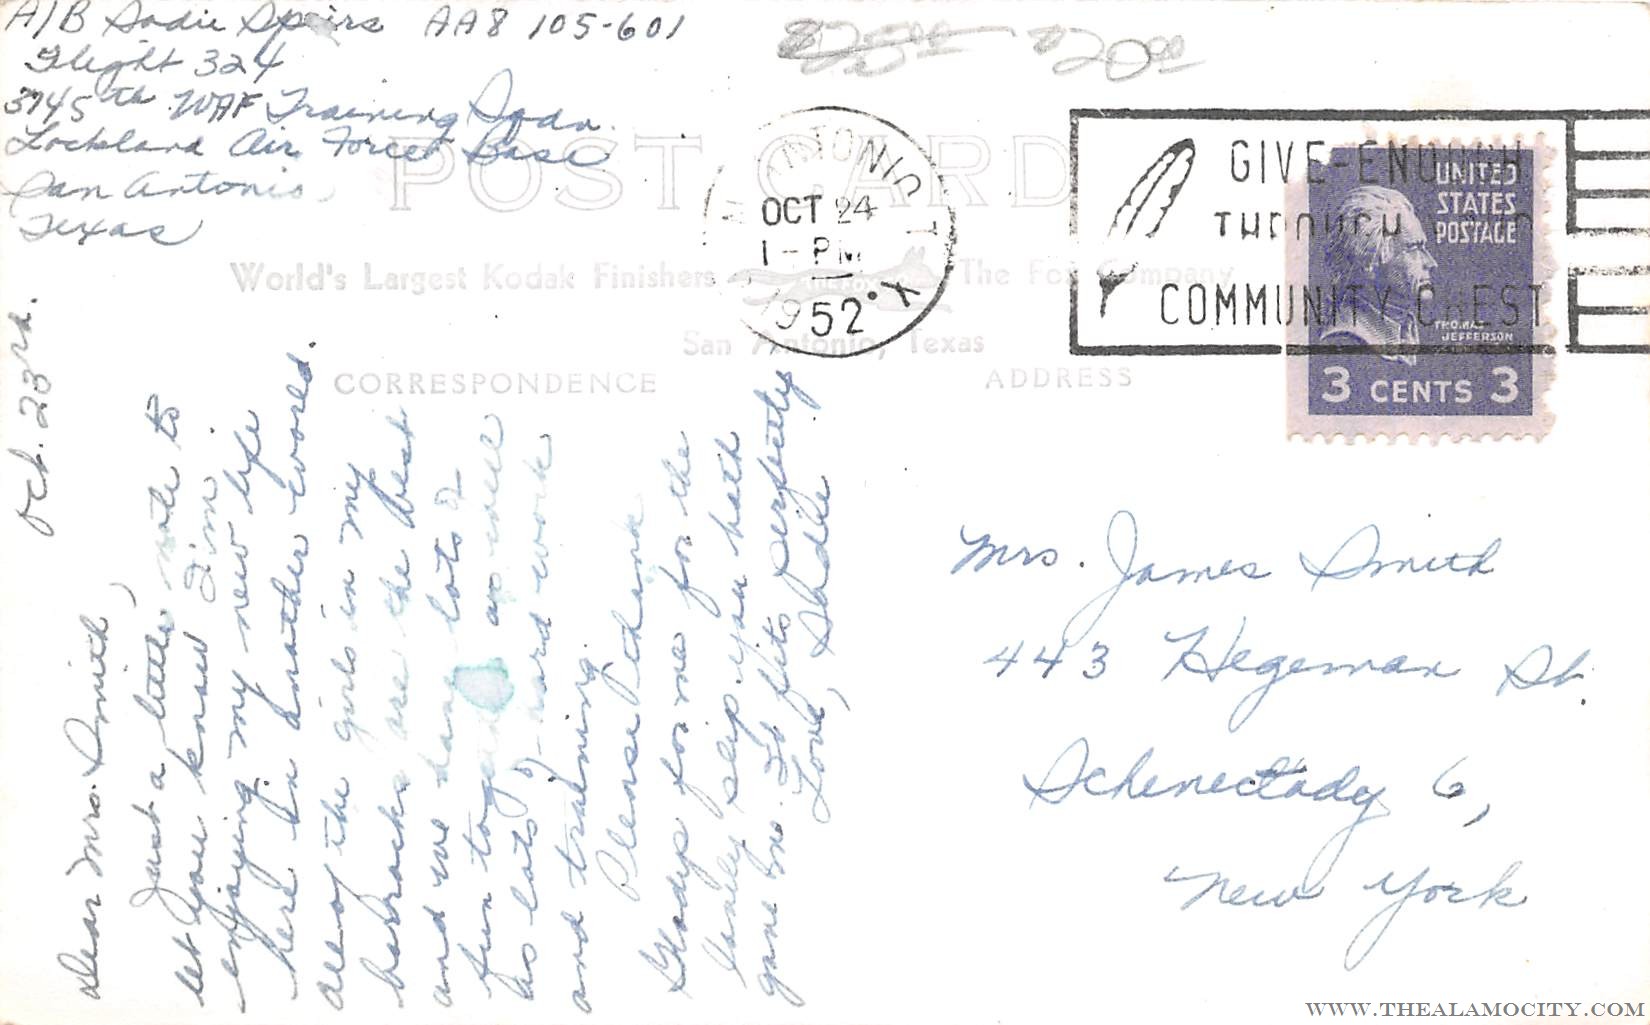 A/B Sadie Speirs AA8 105-601
Flight 324
3745th WAF Training Sqdn.
Lackland Air Force Base
San Antonio,
Texas
$25.00 $20.00
POST CARD
World's Largest Kodak Finishers
THE FOX
The Fox Company
San Antonio, Texas
CORRESPONDENCE
ADDRESS
SAN ANTONIO TEX.
OCT 24
1 - PM
1952
GIVE-ENOUGH
THROUGH
COMMUNITY CHEST
UNITED
STATES
POSTAGE
THOMAS
JEFFERSON
3 CENTS 3
Oct. 23rd.
Dear Mrs. Smith,
Just a little note to
let you know I'm
enjoying my new life
here in another world
All of the girls in my
barracks are the best
and we have lots of
fun together as well
as lots of hard work
and training.
Please thank
Gladys for me for the
lovely slip you both
gave me. It fits perfectly
Love,
Sadie
Mrs. James Smith
443 Hegeman St.
Schenectady 6,
New York
WWW.THEALAMOCITY.COM